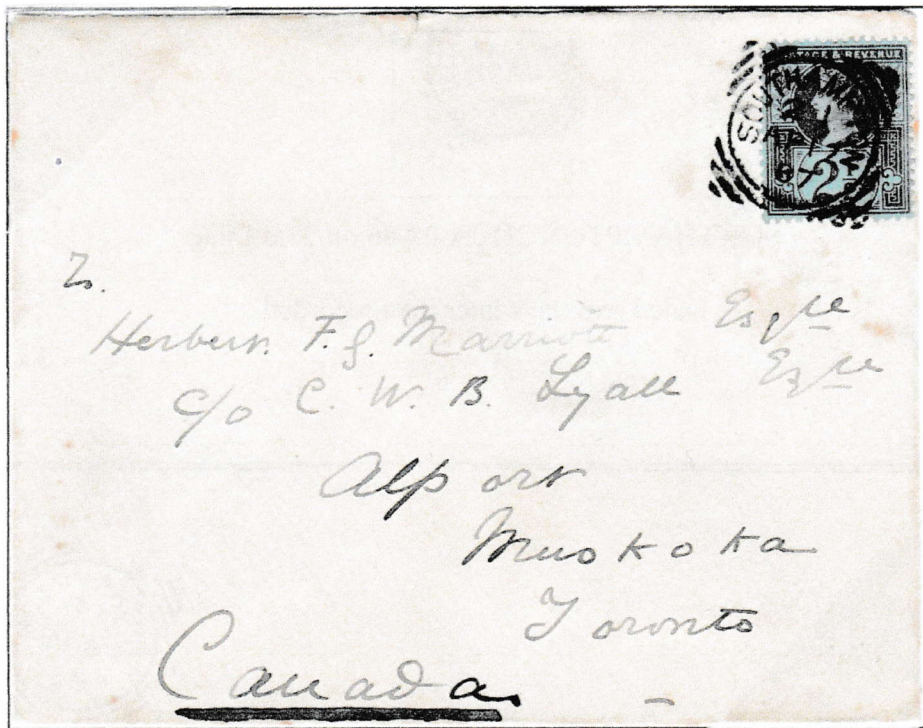 POSTAGE & REVENUE
SOUTHAMPTON
To.
Herbert F. G. Marriott Esqre
c/o C. W. B. Lyall Esqre
Alport
Muskoka
Toronto
Canada